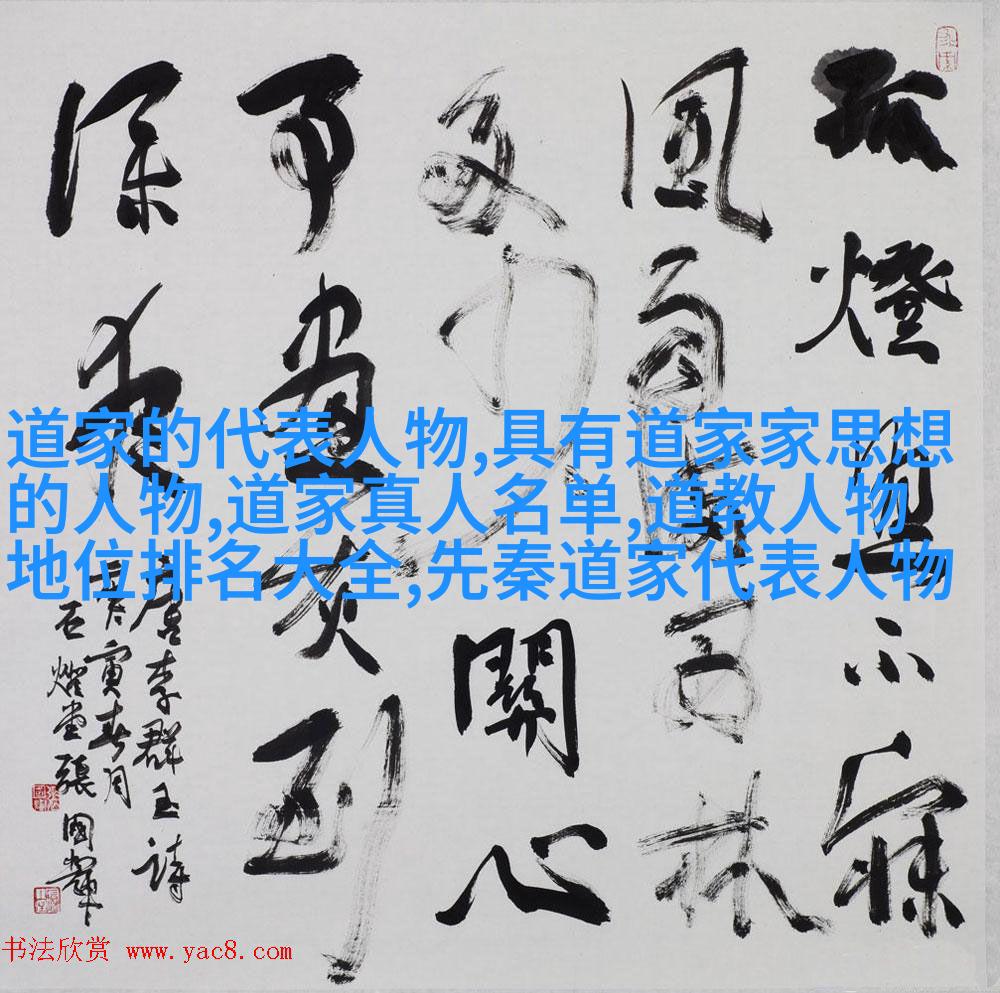 孤燈照不寐
風雨滿西林
多少關心
事畫灰到
深夜
唐李群玉詩
庚寅春月
石堂張國輝
道家的代表人物,具有道家家思想
的人物,道家真人名单,道教人物
地位排名大全,先秦道家代表人物
书法欣赏 www.yac8.com